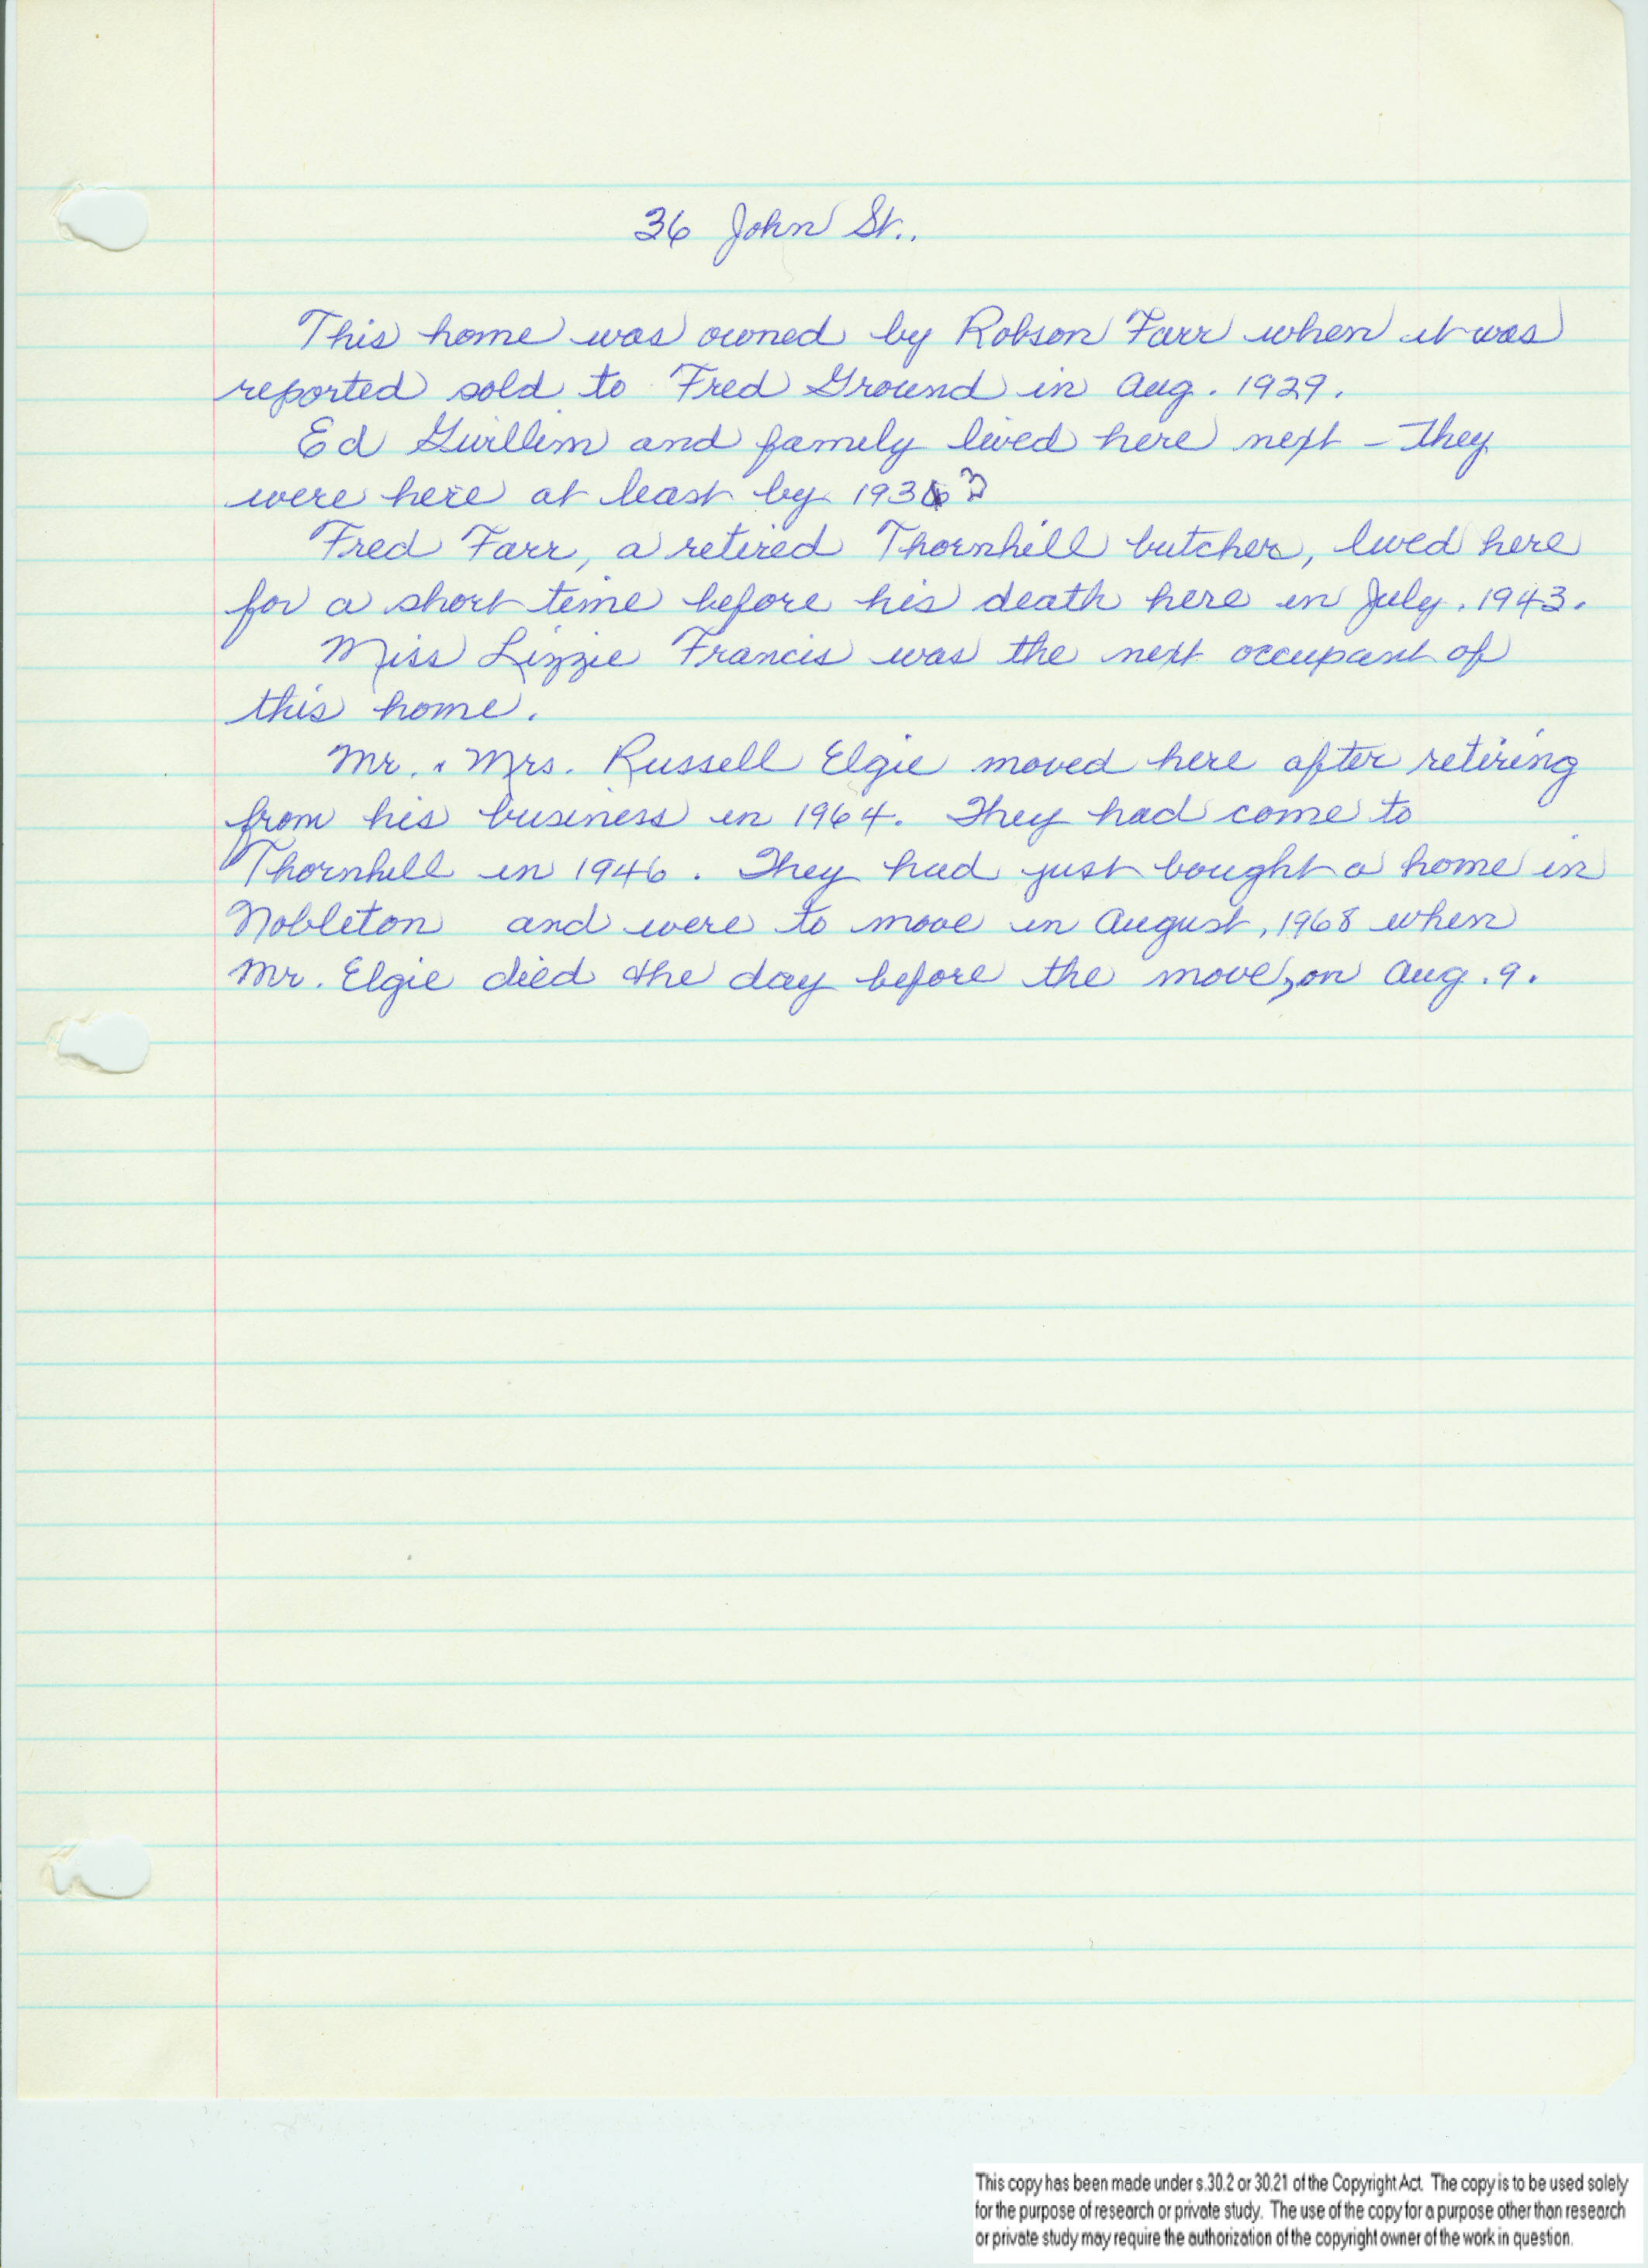 36 John St..
This home was owned by Robson Farr when it was
reported sold to Fred Ground in Aug. 1929.
Ed Gwillim and family lived here next - They
were here at least by 193
Fred Farr, a retired Thornhill butcher, lived here
for a short time before his death here in July, 1943.
Miss Lizzie Francis was the next occupant of
this home.
Mr. & Mrs. Russell Elgie moved here after retiring
from his business in 1964. They had come to
Thornhill in 1946. They had just bought a home in
Nobleton and were to move in August, 1968 when
Mr. Elgie died the day before the move, on Aug. 9.
This copy has been made under s.30.2 or 30.21 of the Copyright Act. The copy is to be used solely
for the purpose of research or private study. The use of the copy for a purpose other than research
or private study may require the authorization of the copyright owner of the work in question.